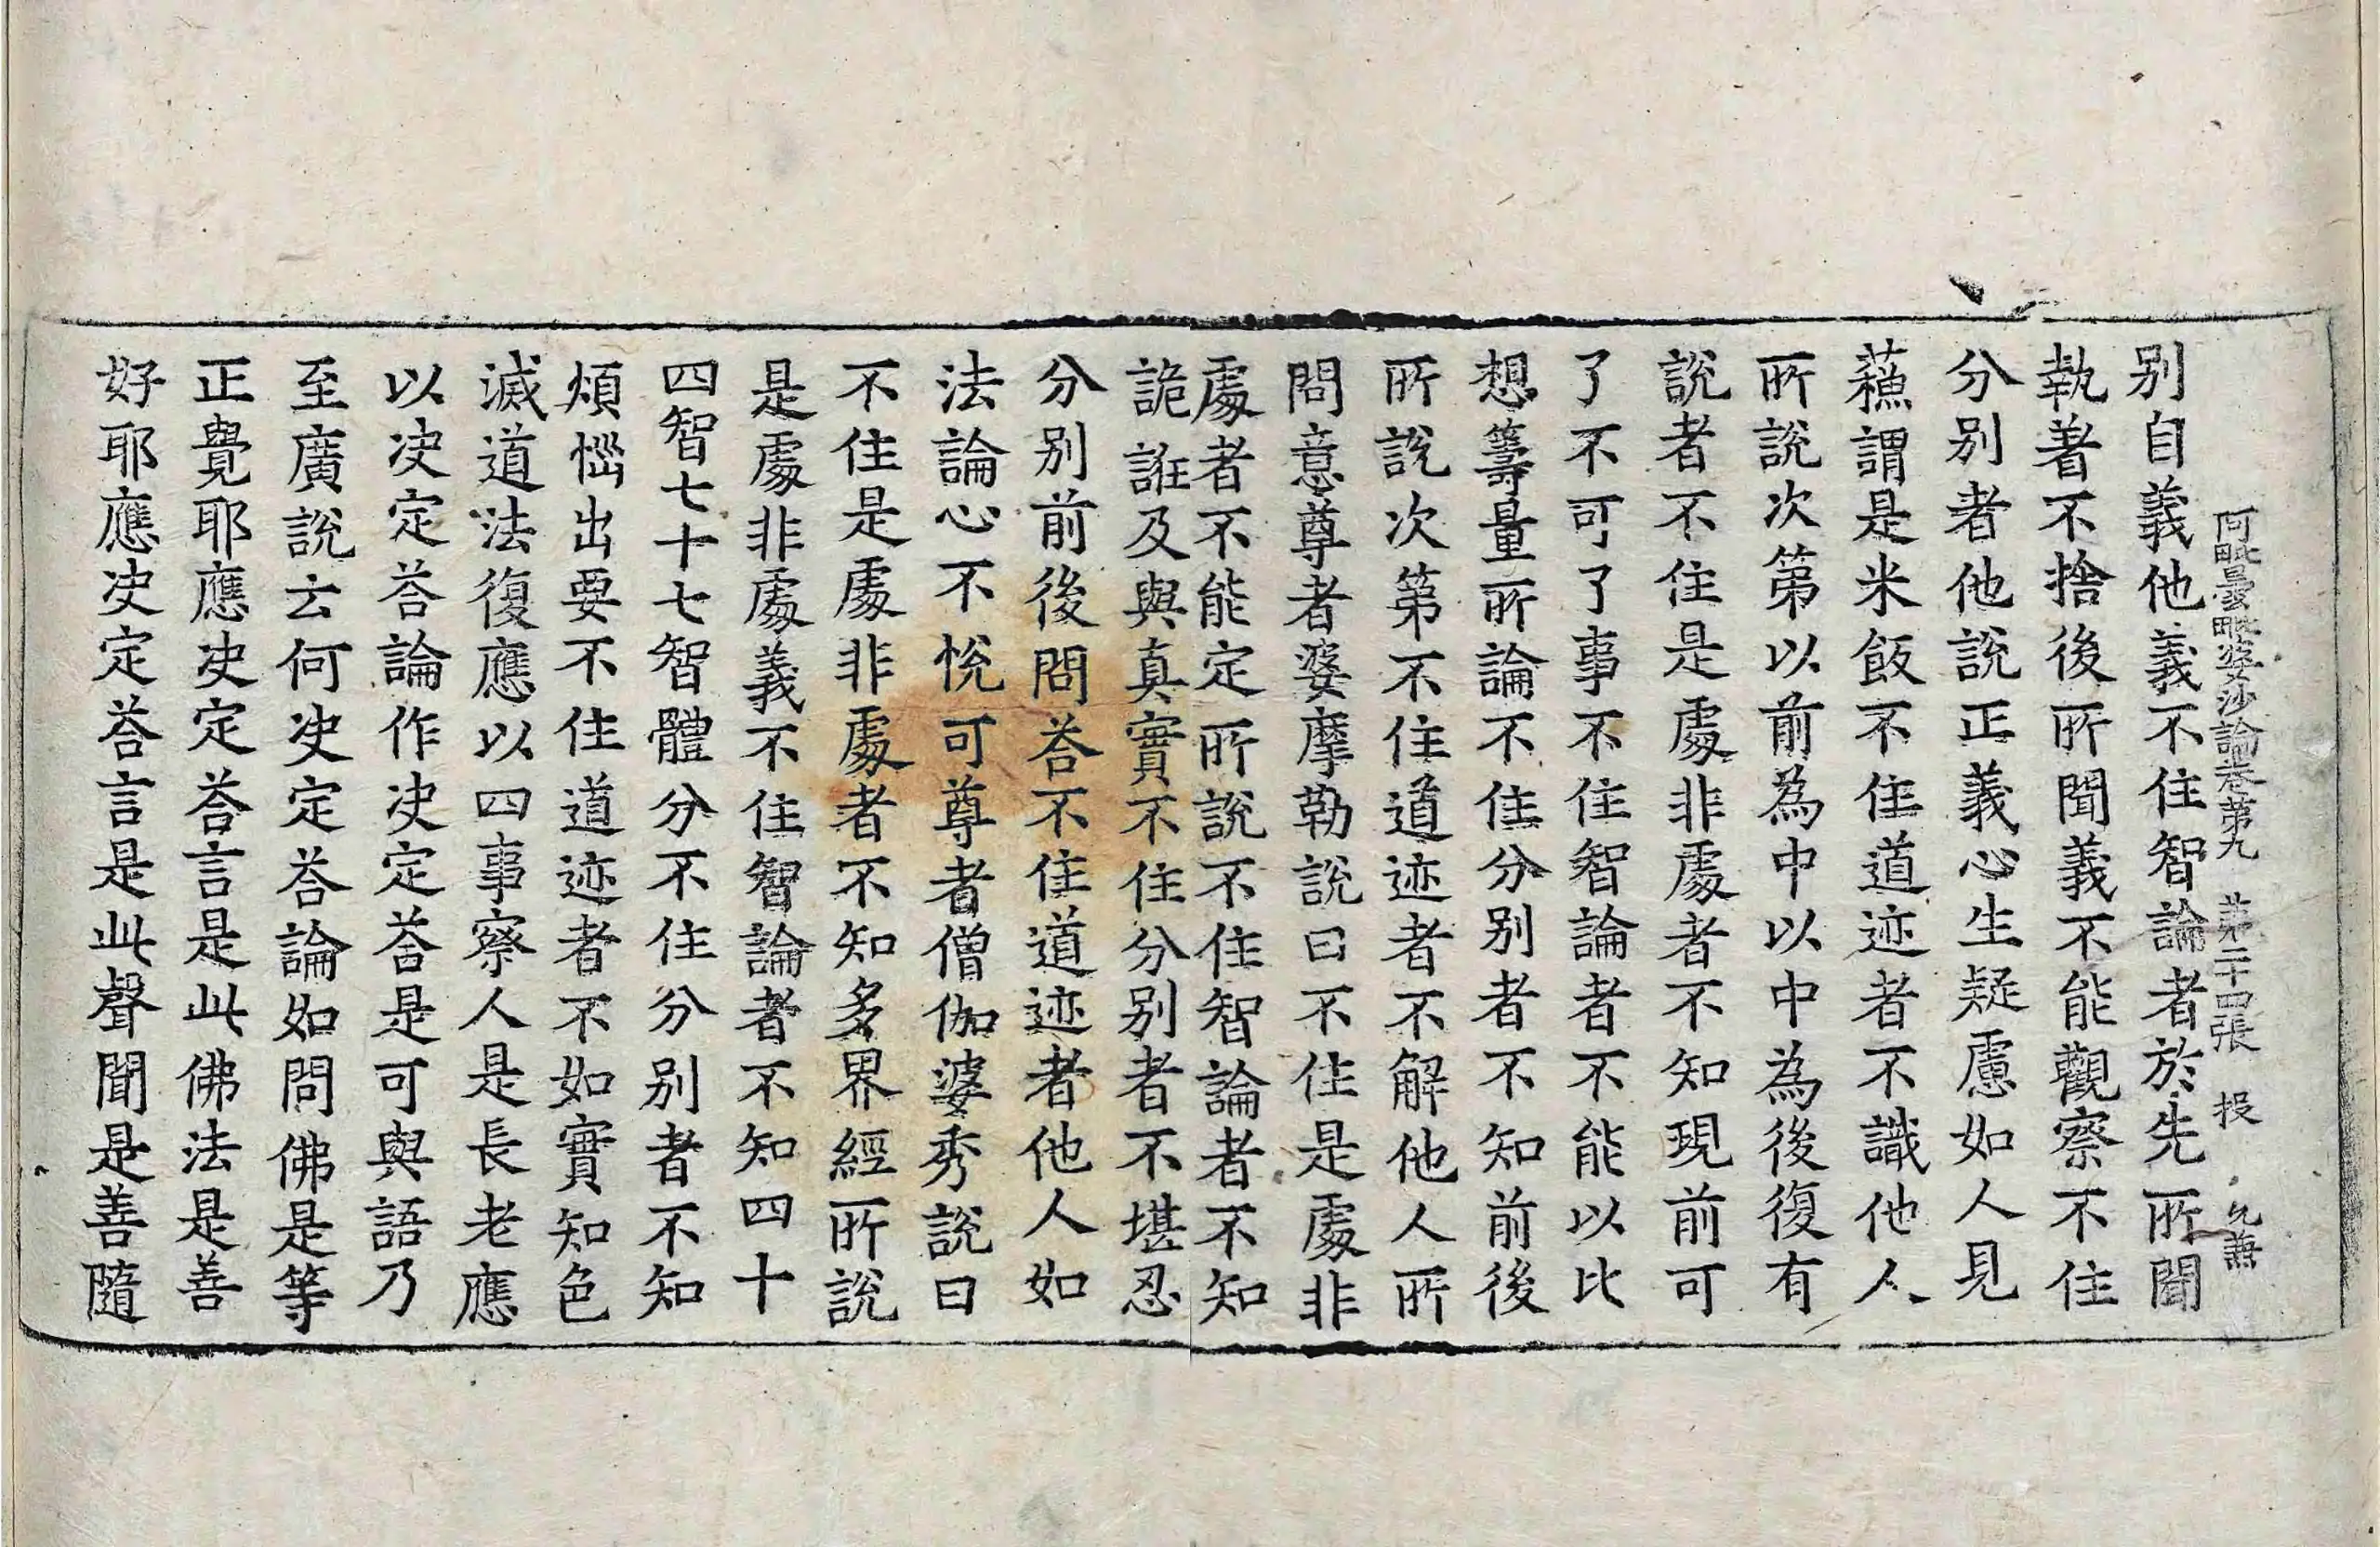 阿毗曇毗婆沙論卷第九 第二十四張 投
別自義他義不住智論者於先所聞
執著不捨後所聞義不能觀察不住
分別者他說正義心生疑慮如人見
蘓謂是米飯不住道迹者不識他人
所說次第以前為中以中為後復有
說者不住是處非處者不知現前可
了不可了事不住智論者不能以比
想籌量所論不住分別者不知前後
所說次第不住道迹者不解他人所
問意尊者婆摩勒說曰不住是處非
處者不能定所說不住智論者不知
詭誑及與真實不住分別者不堪忍
分別前後問荅不住道迹者他人如
法論心不悅可尊者僧伽婆秀說曰
不住是處非處者不知多界經所說
是處非處義不住智論者不知四十
四智七十七智體分不住分別者不知
煩惱出要不住道迹者不如實知色
滅道法復應以四事察人是長老應
以决定荅論作决定荅是可與語乃
至廣說云何决定荅論如問佛是等
正覺耶應决定荅言是此佛法是善
好耶應决定荅言是此聲聞是善隨